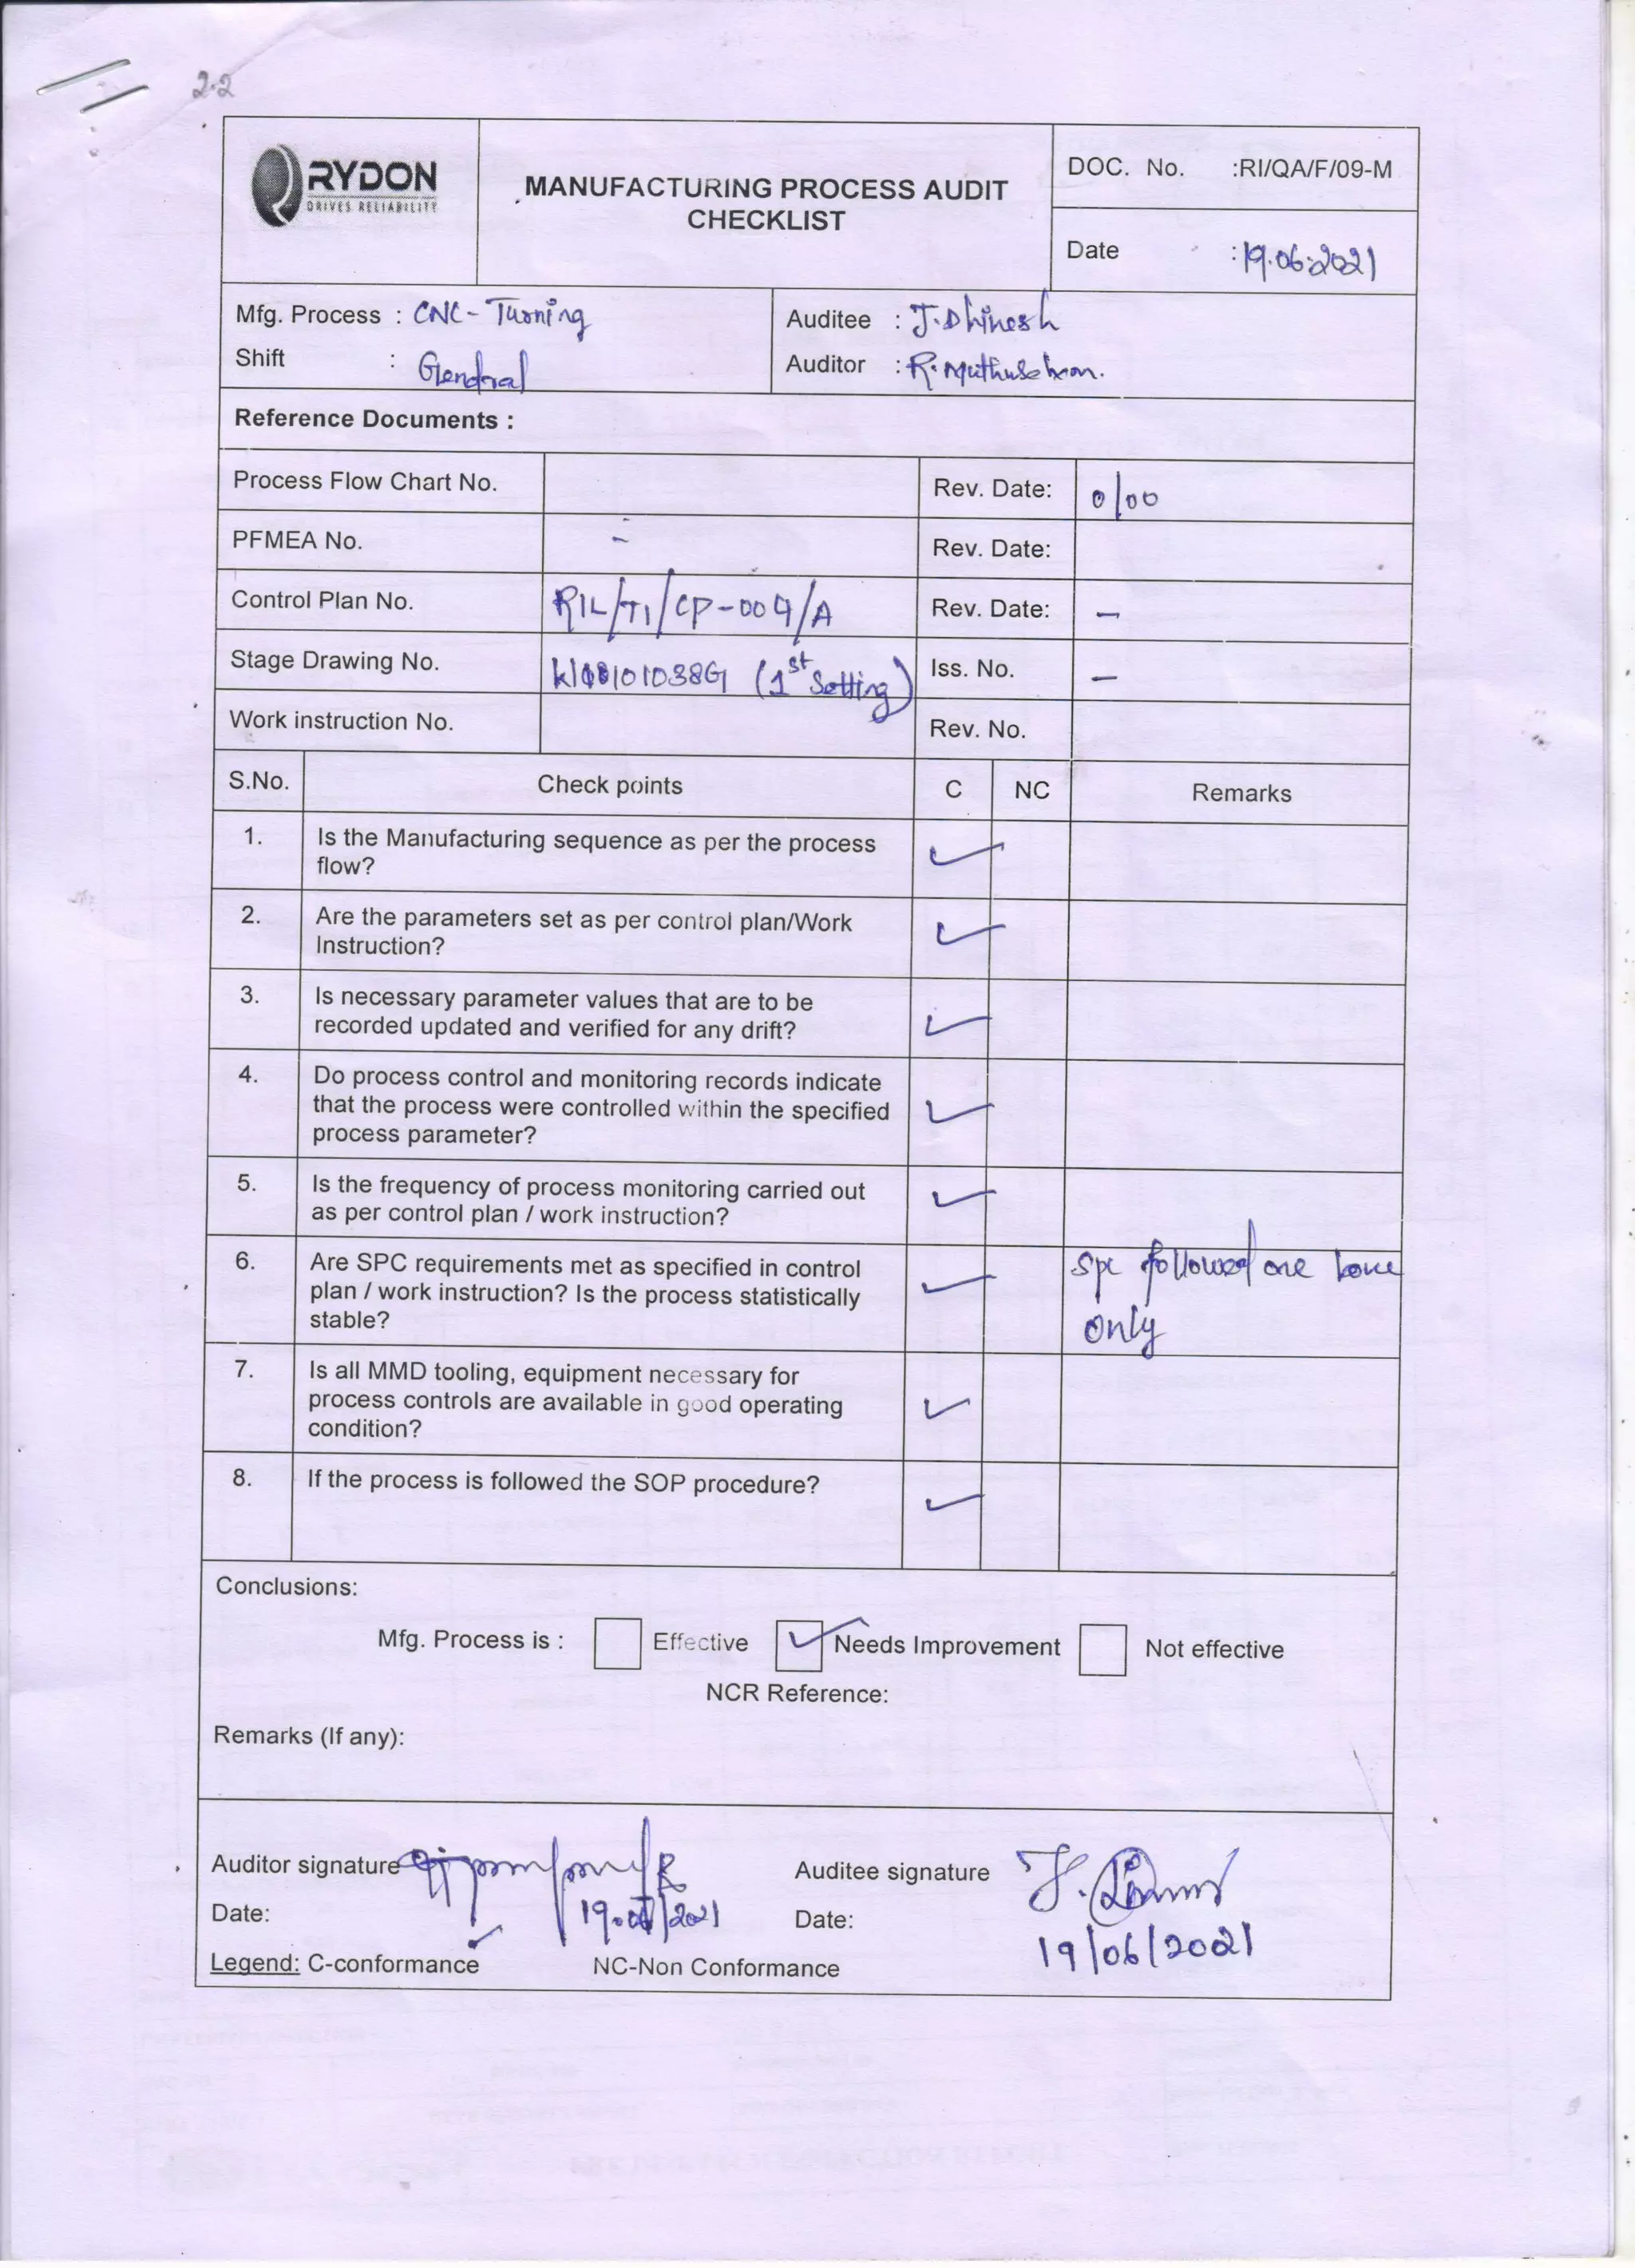 2.2
RYDON
DRIVES RELIABILITY
MANUFACTURING PROCESS AUDIT
CHECKLIST
DOC. No. :RI/QA/F/09-M
Date :19.06.2021
Mfg. Process : CNC- Turning
Auditee : J.Dhinesh
Shift : General
Auditor : R.
Reference Documents :
Process Flow Chart No. Rev. Date: 0/00
PFMEA No. - Rev. Date:
Control Plan No. RIL/TI/CP-004/A Rev. Date: -
Stage Drawing No. (1st Setting) Iss. No. -
Work instruction No. Rev. No.
S.No. Check points C NC Remarks
1. Is the Manufacturing sequence as per the process
flow?
2. Are the parameters set as per control plan/Work
Instruction?
3. Is necessary parameter values that are to be
recorded updated and verified for any drift?
4. Do process control and monitoring records indicate
that the process were controlled within the specified
process parameter?
5. Is the frequency of process monitoring carried out
as per control plan / work instruction?
6. Are SPC requirements met as specified in control
plan / work instruction? Is the process statistically
stable?
Spc followed one
only
7. Is all MMD tooling, equipment necessary for
process controls are available in good operating
condition?
8. If the process is followed the SOP procedure?
Conclusions:
Mfg. Process is : Effective Needs Improvement Not effective
NCR Reference:
Remarks (If any):
Auditor signature Auditee signature
Date: 19.06/2021 Date: 19/06/2021
Legend: C-conformance NC-Non Conformance